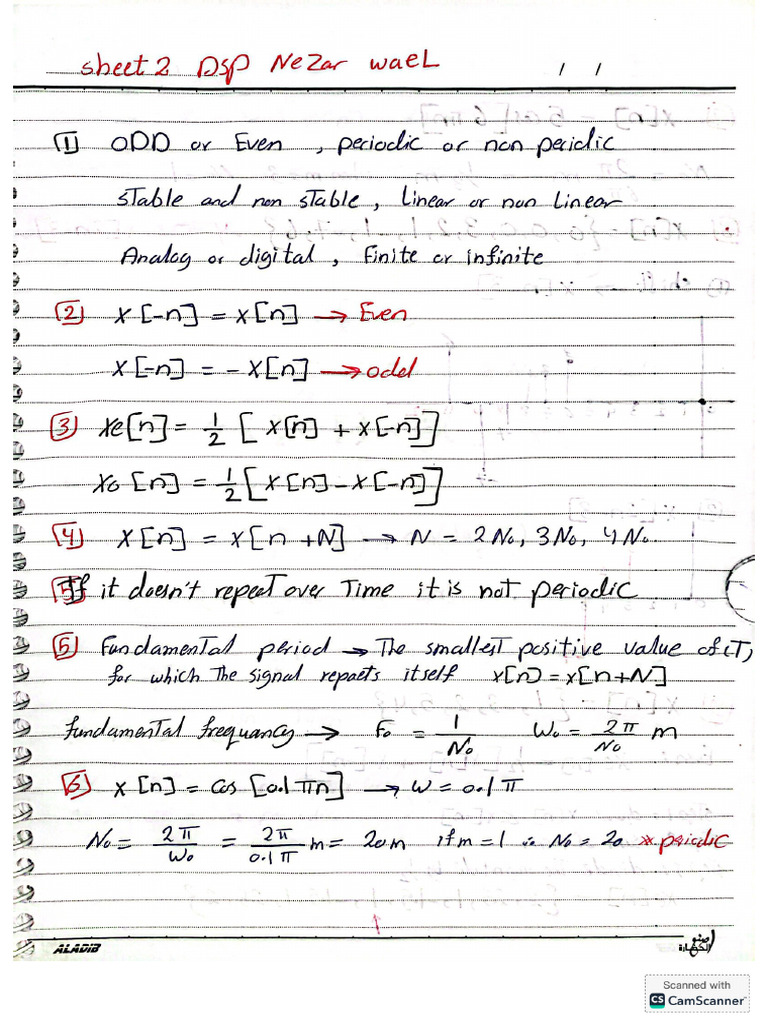 sheet 2 DSP Nezar wael
/ /
1 ODD or Even , periodic or non peridic
stable and non stable , Linear or non Linear
Analog or digital , Finite or infinite
2 x[-n] = x[n] → Even
x[-n] = - x[n] → odd
3 xe[n] = 1/2 [ x[n] + x[-n] ]
xo[n] = 1/2 [ x[n] - x[-n] ]
4 x[n] = x[n+N] → N = 2No, 3No, 4No
If it doesn't repeat over Time it is not periodic
5 Fundamental period → The smallest positive value of (T)
for which The signal repaets itself x[n) = x[n+N]
Fundamental frequancy → Fo = 1/No Wo = 2π/No m
6 x[n] = Cos [0.1πn] → W = 0.1π
No = 2π/Wo = 2π/0.1π m = 20m if m = 1 ∴ No = 20 * peiodic
1
ALADIB
Scanned with
CS CamScanner